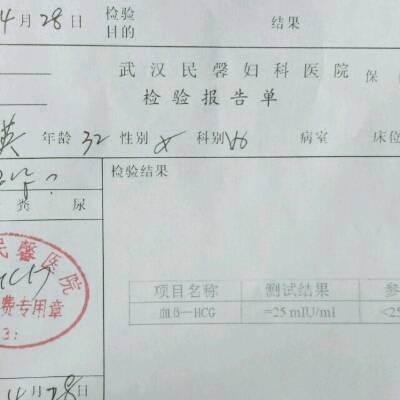 4月28日 检验目的 结果
武汉民馨妇科医院 保
检验报告单
英 年龄 32 性别 女 科别 病室 床位
检验结果
粪 尿
民馨医院
费专用章
项目名称 测试结果 参
血β—HCG =25 mIU/ml <25
4月28日